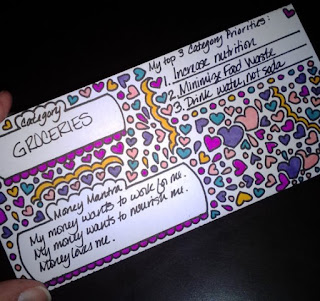 Category
GROCERIES
My top 3 Category Priorities:
1. Increase nutrition
2. Minimize Food Waste
3. Drink water, not soda
Money Mantra
My money wants to work for me.
My money wants to nourish me.
Money loves me.